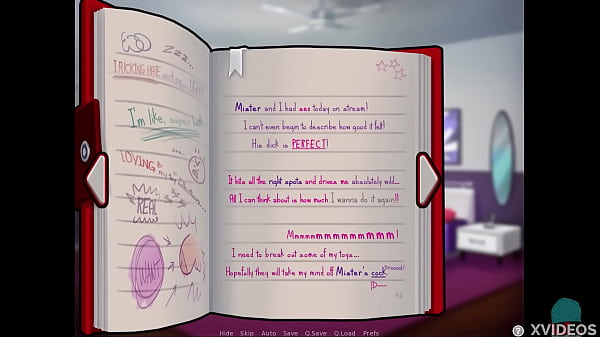 Zzz...
I FUCKING HATE
I'm like, super
LOVING
REAL
WANT
Mister and I had sex today on stream!
I can't even begin to describe how good it felt!
His dick is PERFECT!
It hits all the right spots and drives me absolutely wild...
All I can think about is how much I wanna do it again!!
Mmmmmmmmmmmmm!
I need to break out some of my toys...
Hopefully they will take my mind off Mister's cock.
51
Hide Skip Auto Save Q.Save Q.Load Prefs
XVIDEOS